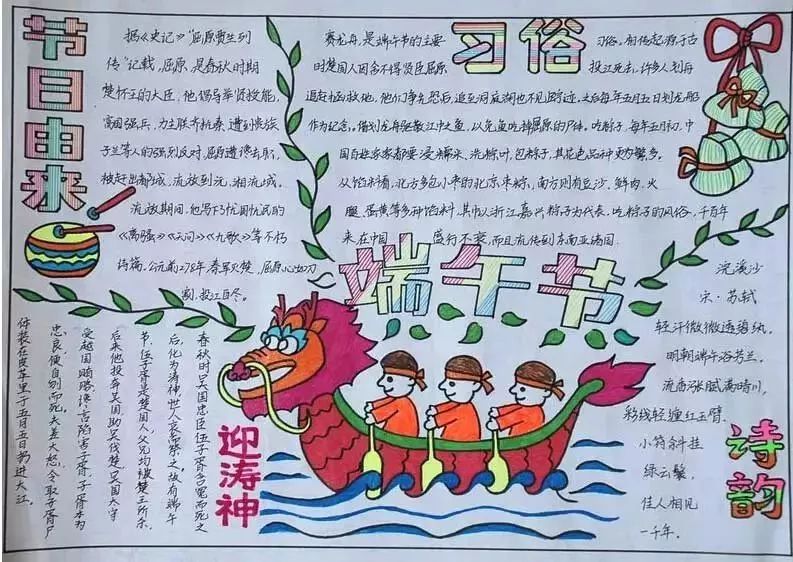 节日由来
据《史记》"屈原贾生列
传"记载,屈原,是春秋时期
楚怀王的大臣。他倡导举贤授能,
富国强兵,力主联齐抗秦,遭到贵族
子兰等人的强烈反对,屈原遭馋去职,
被赶出都城,流放到沅、湘流域。
流放期间,他写下了忧国忧民的
《离骚》《天问》《九歌》等不朽
诗篇。公元前278年,秦军灭楚,屈原心如刀
割,投江自尽。
习俗
赛龙舟,是端午节的主要
习俗。相传起源于古
时楚国人因舍不得贤臣屈原
投江死去,许多人划舟
追赶拯救他。他们争先恐后,追至洞庭湖也不见踪迹。之后每年五月五日划龙船
作为纪念。借划龙舟驱散江中之鱼,以免鱼吃掉屈原的尸体。吃粽子,每年五月初,中
国百姓家家都要浸糯米、洗粽叶、包粽子,其花色品种更为繁多。
从馅料看,北方多包小枣的北京枣粽,南方则有豆沙、鲜肉、火
腿、蛋黄等多种馅料,其中以浙江嘉兴粽子为代表。吃粽子的风俗,千百年
来在中国
盛行不衰,而且流传到东南亚诸国。
端午节
浣溪沙
宋·苏轼
轻汗微微透碧纨,
明朝端午浴芳兰。
流香涨腻满晴川,
彩线轻缠红玉臂,
小符斜挂
绿云鬟,
佳人相见
一千年。
诗韵
迎涛神
春秋时吴国忠臣伍子胥含冤而死之
后,化为涛神,世人哀而祭之,故有端午
节。伍子胥是楚国人,父兄均被楚王所杀,
后来他投奔吴国,助吴伐楚。吴国大宰
受越国贿赂,谗言陷害子胥,子胥本为
忠良,便自刎而死,夫差大怒,令取子胥尸
体装在皮革里于五月五日扔进大江。